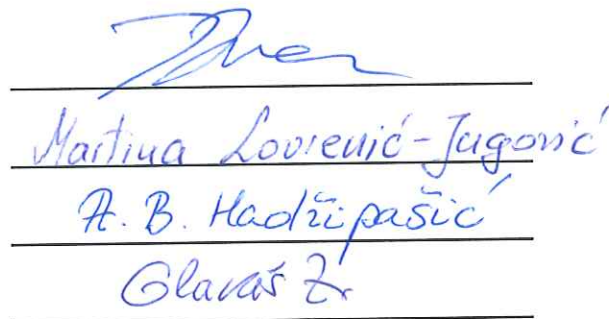 Martina Lovrenić-Jugović
A. B. Hadžipašić
Glavaš Z.